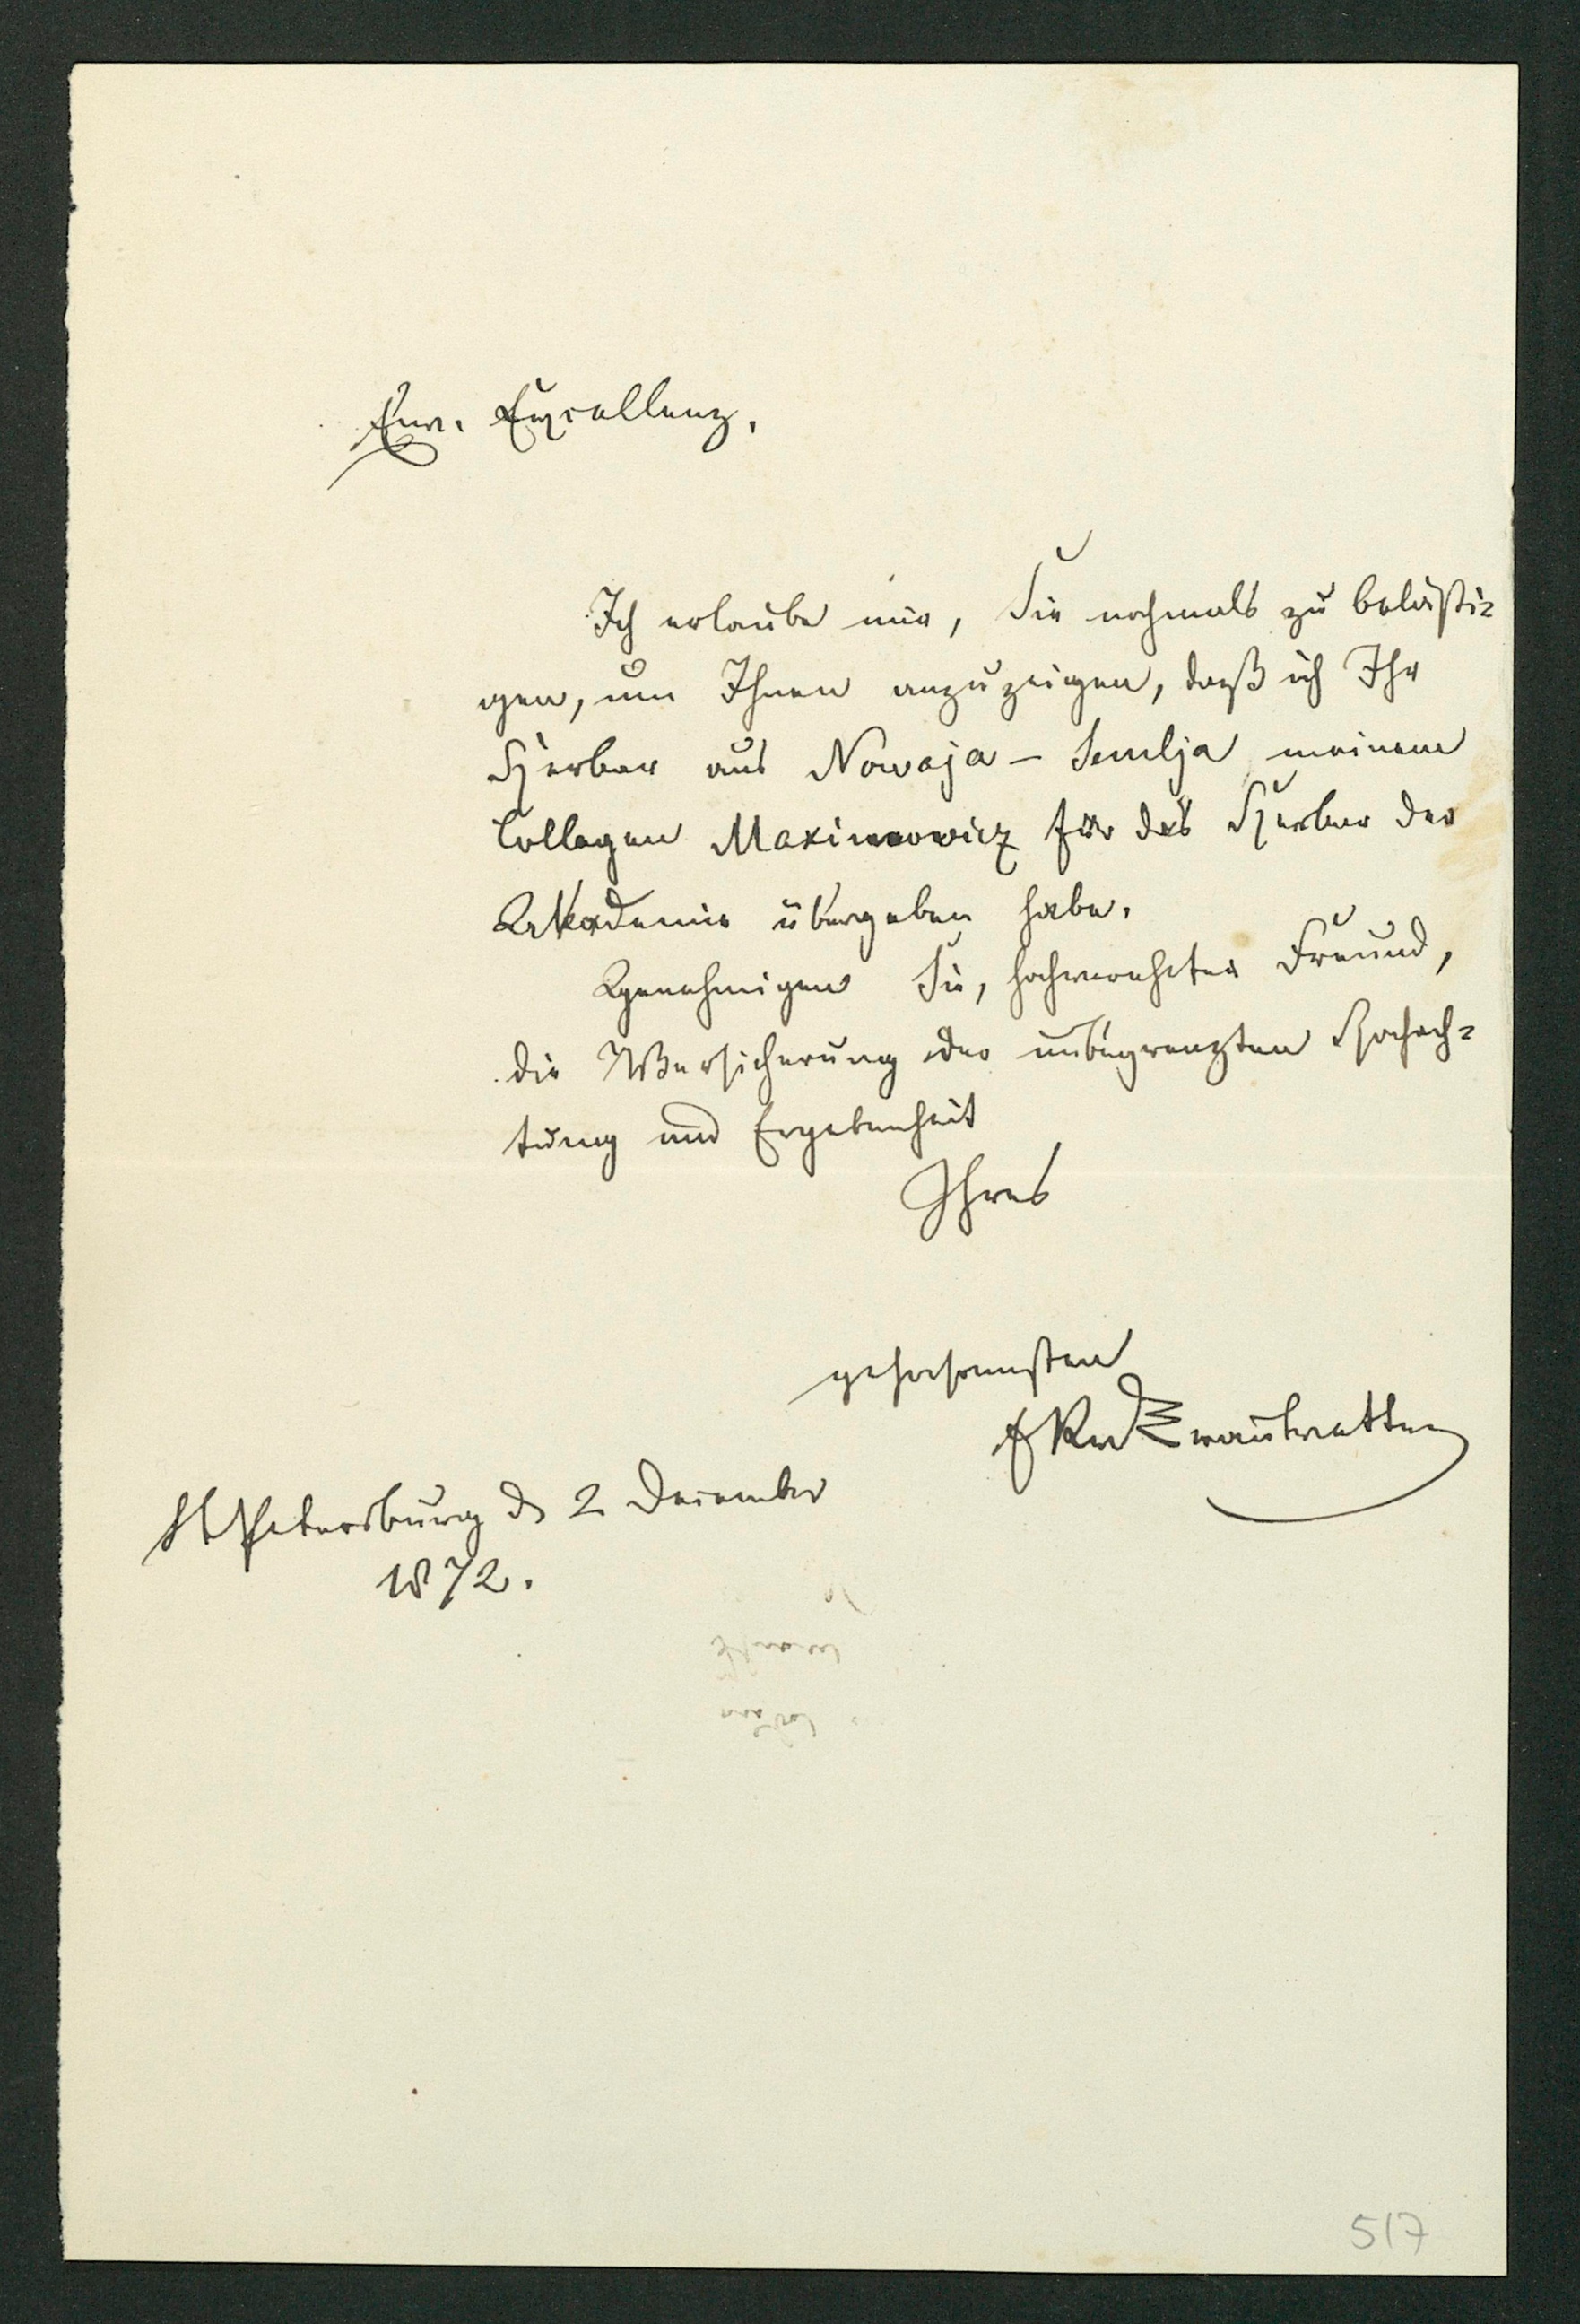 Eur. Excellenz,
Ich erlaube mir, Sie nochmals zu belästi=
gen, um Ihnen anzuzeigen, daß ich Ihr
Herbar aus Nowaja-Semlja meinem
Collegen Maximowicz für das Herbar der
Akademie übergeben habe.
Genehmigen Sie, hochverehrter Freund,
die Versicherung der unbegrenzten Hochach=
tung und Ergebenheit
Ihres
gehorsamsten
Trautvetter
St Petersburg d 2 December
1872.
517